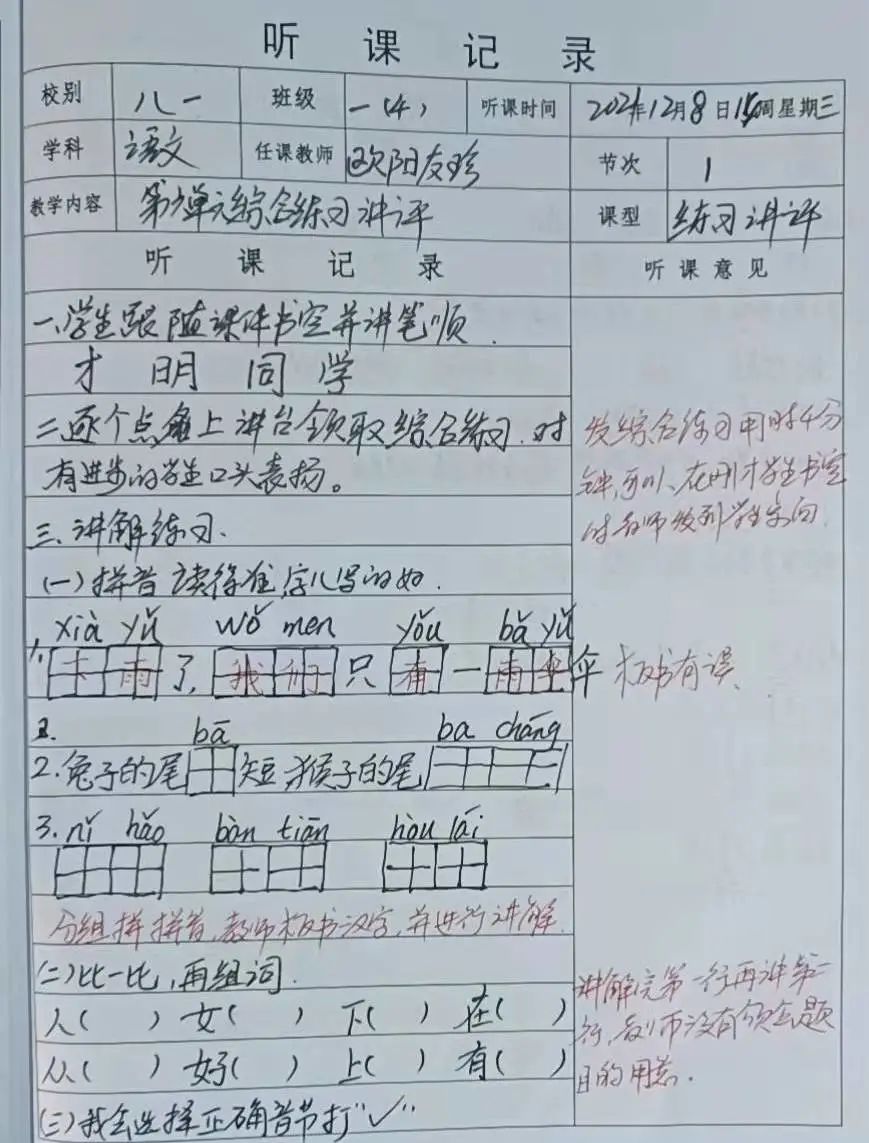 听课记录
校别 八一 班级 一(4) 听课时间 2021年12月8日14周星期三
学科 语文 任课教师 欧阳友珍 节次 1
教学内容 第7单元综合练习讲评 课型 练习讲评
听课记录 听课意见
一、学生跟随课件书空并讲笔顺.
才 明 同 学
二、逐个点名上讲台领取综合练习.对
有进步的学生口头表扬。
发综合练习用时4分
钟,可以、在刚才学生书空
时教师发到学生桌向.
三、讲解练习.
(一)拼音读得准,字儿写的好.
xià yǔ wǒ men yǒu bǎ yǔ
1、下雨了,我们只有一雨伞伞 板书有误、
bā ba cháng
2.兔子的尾 短,猴子的尾
3. nǐ hǎo bàn tiān hòu lái
分组拼拼音,教师板书汉字,并进行讲解.
(二)比一比,再组词.
人( ) 女( ) 下( ) 在( )
从( ) 好( ) 上( ) 有( )
讲解完第一行再讲第二
行,教师没有领会题
目的用意.
(三)我会选择正确音节打"✓"